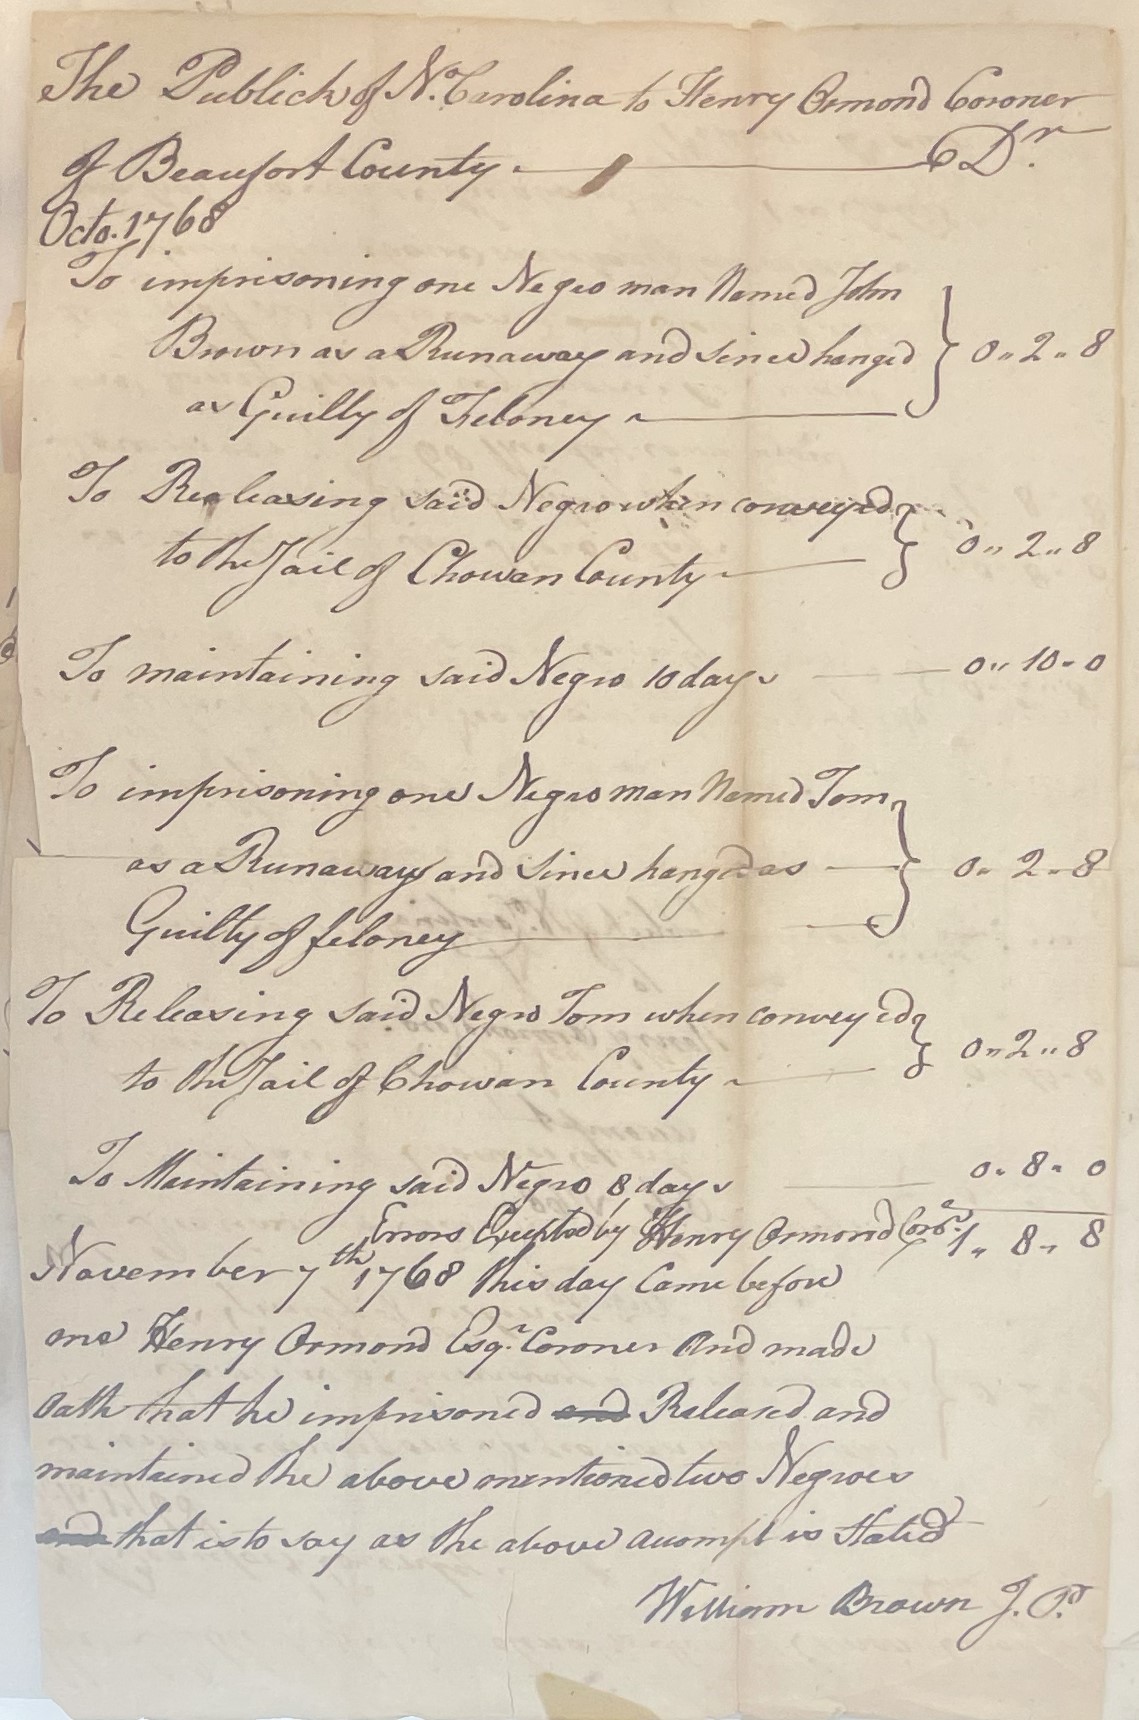 The Publick of N. Carolina to Henry Ormond Coroner
of Beaufort County. Dr.
Octo. 1768
To imprisoning one Negro man Named John
Brown as a Runaway and since hanged } 0 „ 2 „ 8
as Guilty of Feloney
To Realeasing said Negro when conveyed
to the Jail of Chowan County } 0 „ 2 „ 8
To maintaining said Negro 10 days 0 „ 10 „ 0
To imprisoning one Negro man Named Tom
as a Runaway and Since hanged as } 0 „ 2 „ 8
Guilty of feloney
To Releasing said Negro Tom when conveyed
to the Jail of Chowan County } 0 „ 2 „ 8
To Maintaining said Negro 8 days 0 „ 8 „ 0
Errors Excepted by Henry Ormond Corор. 1 „ 8 „ 8
November 7th 1768 this day Came before
me Henry Ormond Esqr. Coroner And made
Oath that he imprisoned and Released and
maintained the above mentioned two Negroes
and that is to say as the above accompt is Stated
William Brown J. P.